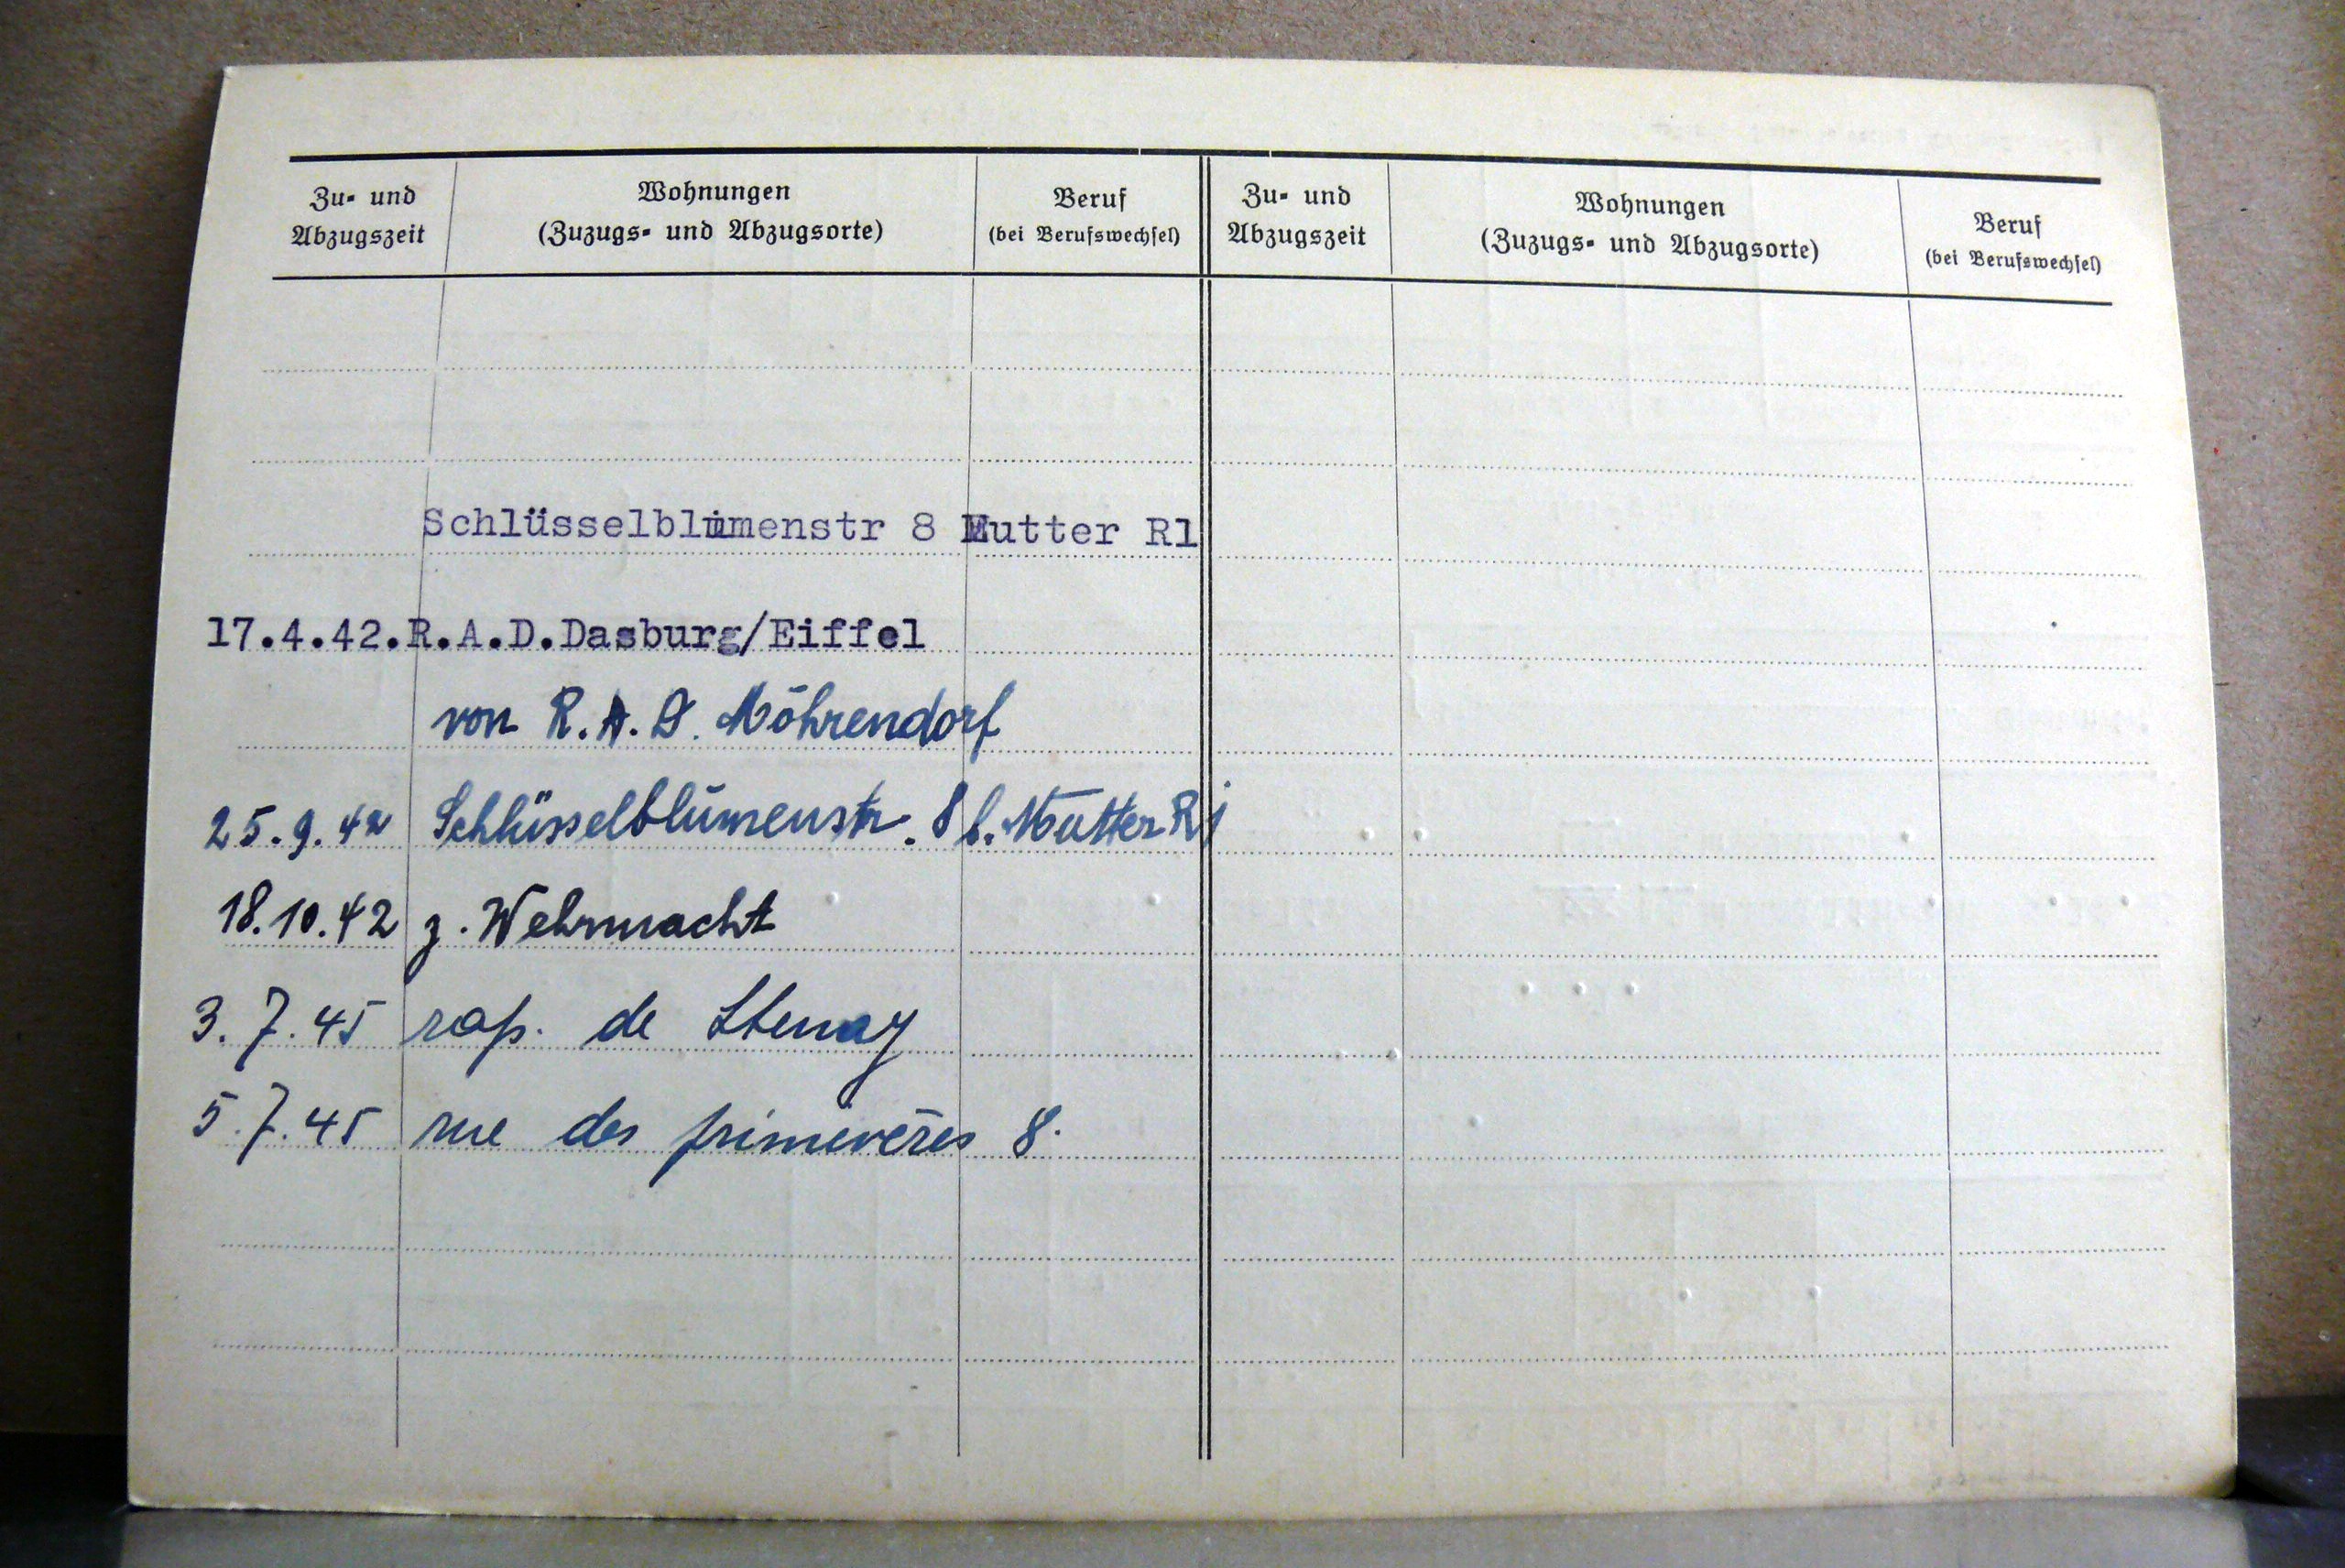 Zu- und
Abzugszeit
Wohnungen
(Zuzugs- und Abzugsorte)
Beruf
(bei Berufswechsel)
Zu- und
Abzugszeit
Wohnungen
(Zuzugs- und Abzugsorte)
Beruf
(bei Berufswechsel)
Schlüsselblumenstr 8 Mutter Rl
17.4.42. R.A.D.Dasburg/Eiffel
von R.A.D. Möhrendorf
25.9.42 Schlüsselblumenstr. 8 b. Mutter R
18.10.42 z. Wehrmacht
3.7.45 rap. de Stenay
5.7.45 rue des primevères 8.